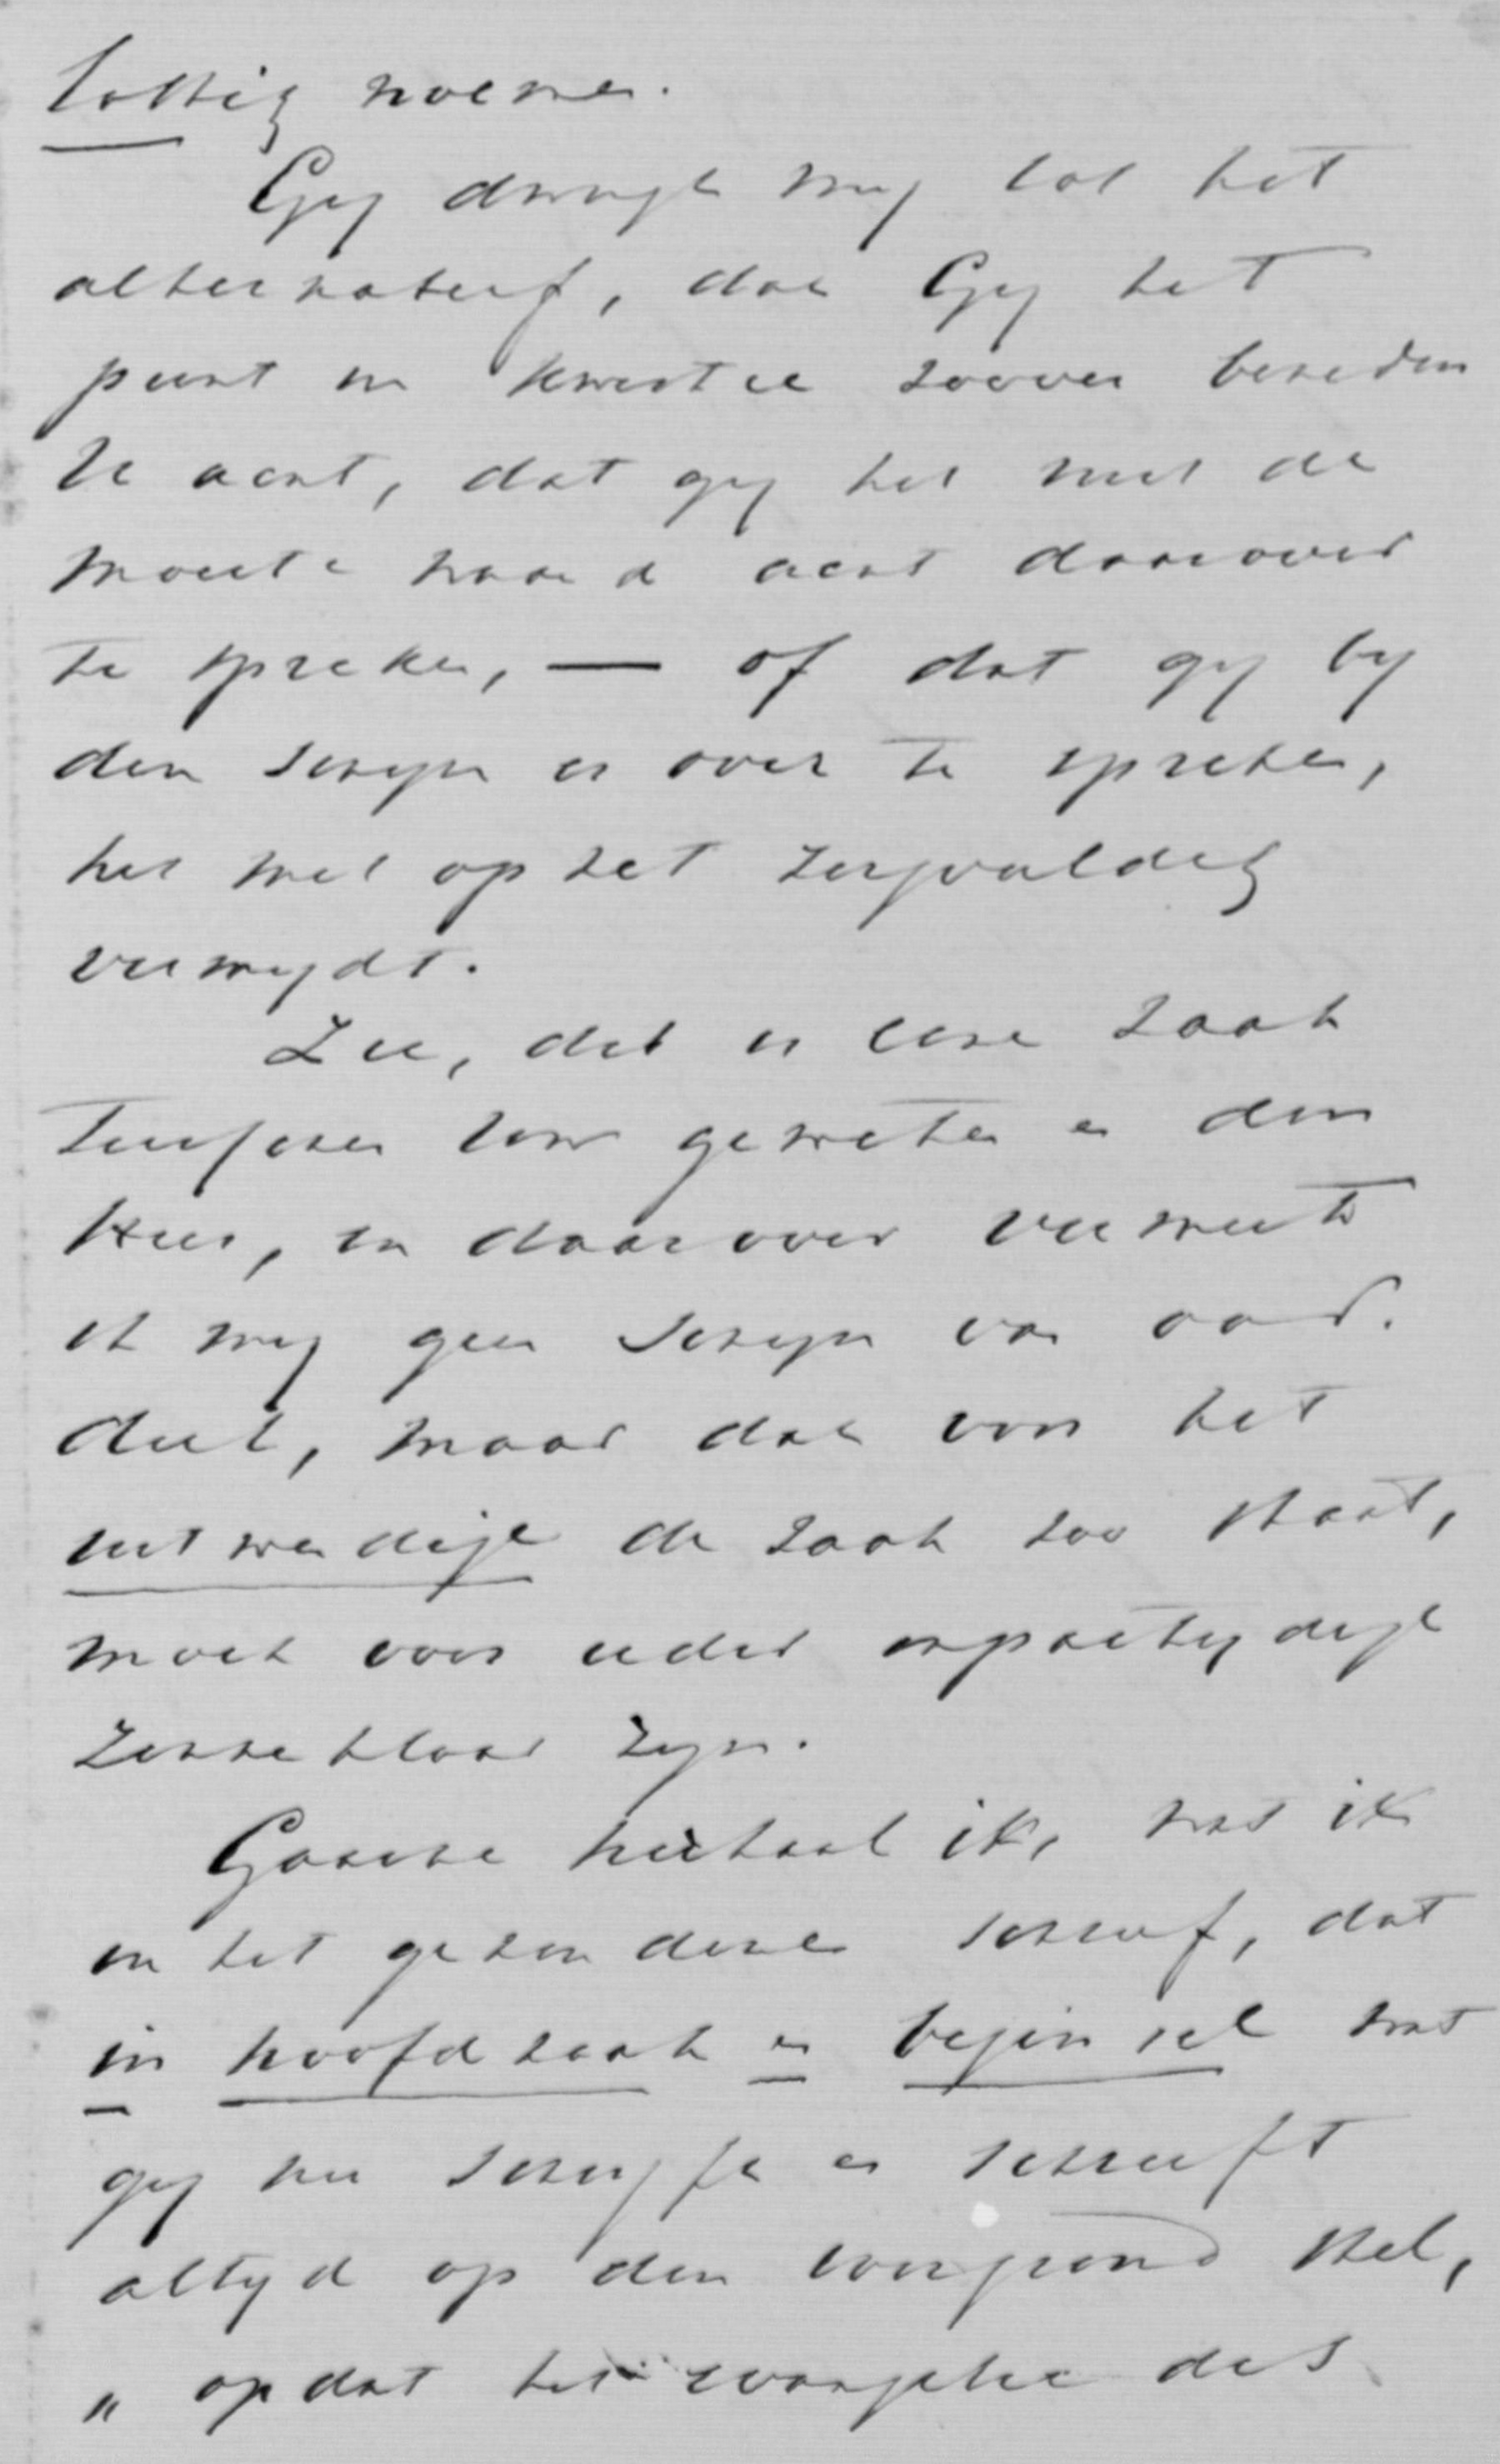 tallig noemen.
Gij dringt mij tot het
alternatief, dat Gij het
punt in kwestie zoover beneden
U acht, dat gij het niet de
moeite waard acht daarover
te spreken, — of dat gij bij
den schijn er over te spreken,
het met opzet zorgvuldig
vermijdt.
Zie, dit is eene zaak
tusschen Uw geweten en den
Heer, en daarover vermeet
ik mij geen schijn van oor-
deel, maar dat voor het
uitwendige de zaak zoo staat,
moet voor ieder onpartijdige
zonneklaar zijn.
Gaarne herhaal ik, wat ik
in het gezondene schreef, dat
in hoofdzaak en beginsel wat
gij nu schrijft en schreeft
altijd op den voorgrond stel,
" opdat het evangelie des